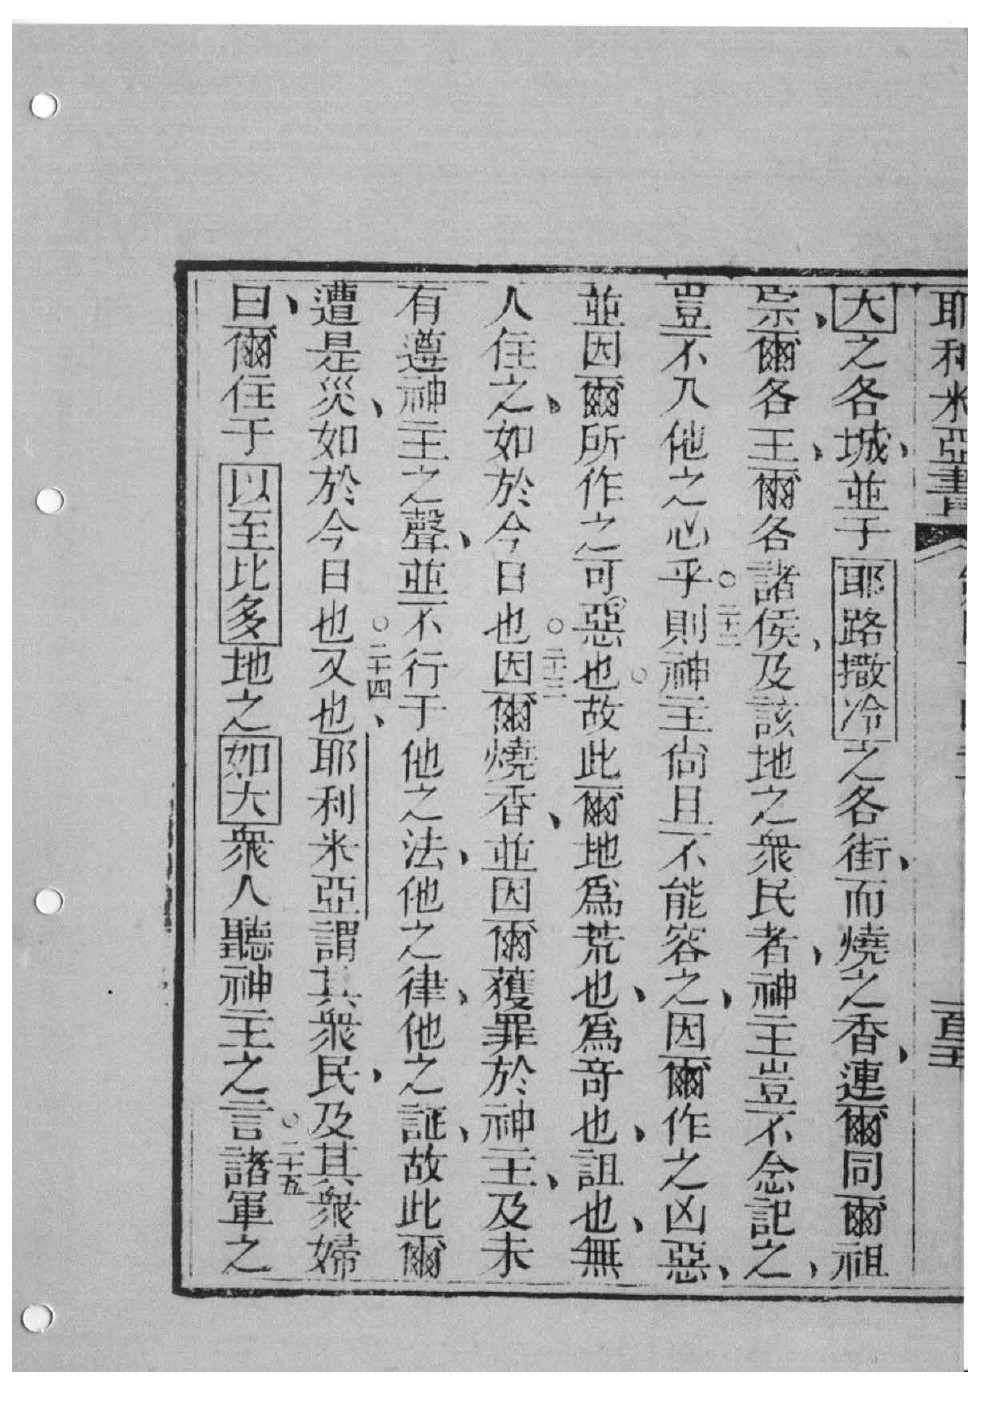 耶利米亞書
大之各城、並于耶路撒冷之各街、而燒之香、連爾同爾祖
宗、爾各王、爾各諸侯、及該地之衆民者、神主豈不念記之、
豈不入他之心乎○二十二則神主尙且不能容之、因爾作之凶惡、
並因爾所作之可惡也。故此爾地爲荒也、爲奇也、詛也、無
人住之、如於今日也○二十三因爾燒香、並因爾獲罪於神主、及未
有遵神主之聲、並不行于他之法、他之律、他之証、故此爾
遭是災、如於今日也○二十四、又也耶利米亞謂其衆民、及其衆婦
曰、爾住于以至比多地之如大衆人聽神主之言○二十五諸軍之